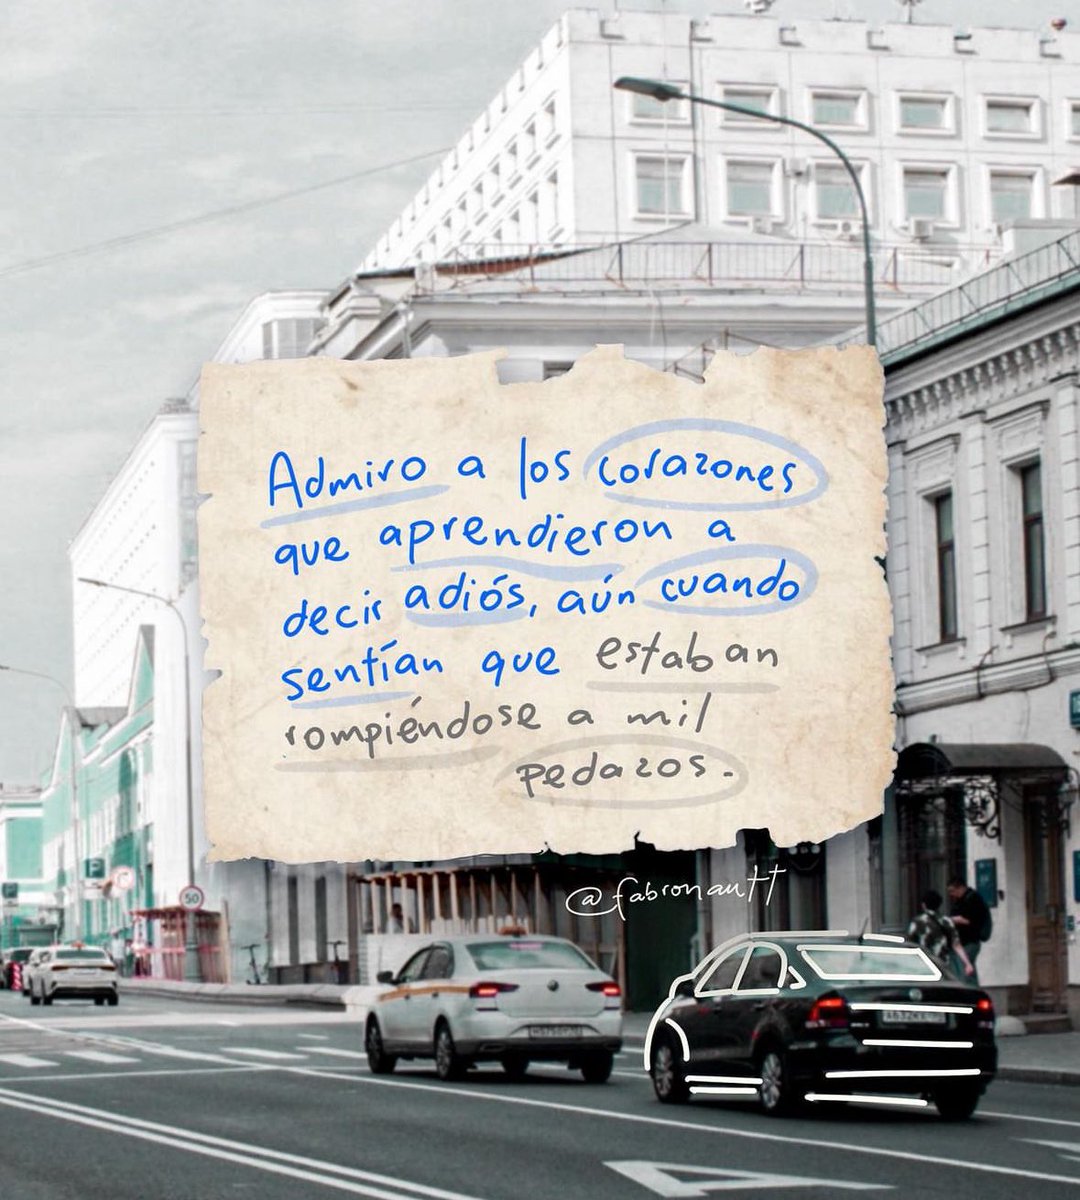 Admiro a los corazones
que aprendieron a
decir adiós, aún cuando
sentían que estaban
rompiéndose a mil
pedazos.
@fabronautt
50